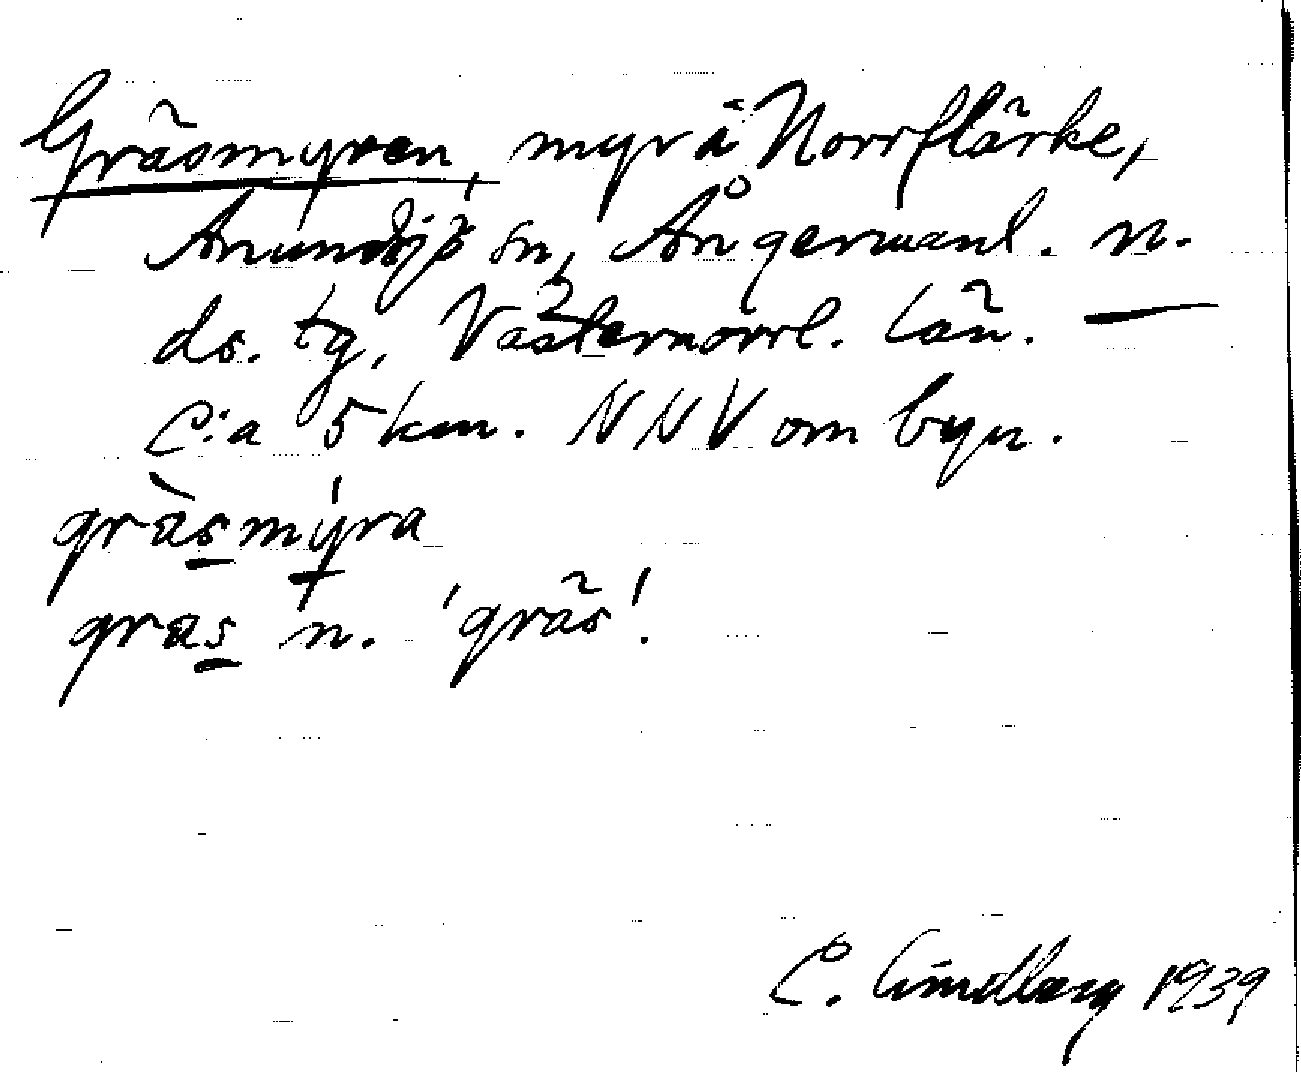 Gräsmyren, myr å Norrflärke,
Anundsjö sn, Ångermanl. n.
ds. tg, Västernorrl. län. —
C:a 5 km. NNV om byn.
gràsmýra
gras n. 'gräs'.
C. Lindberg 1939